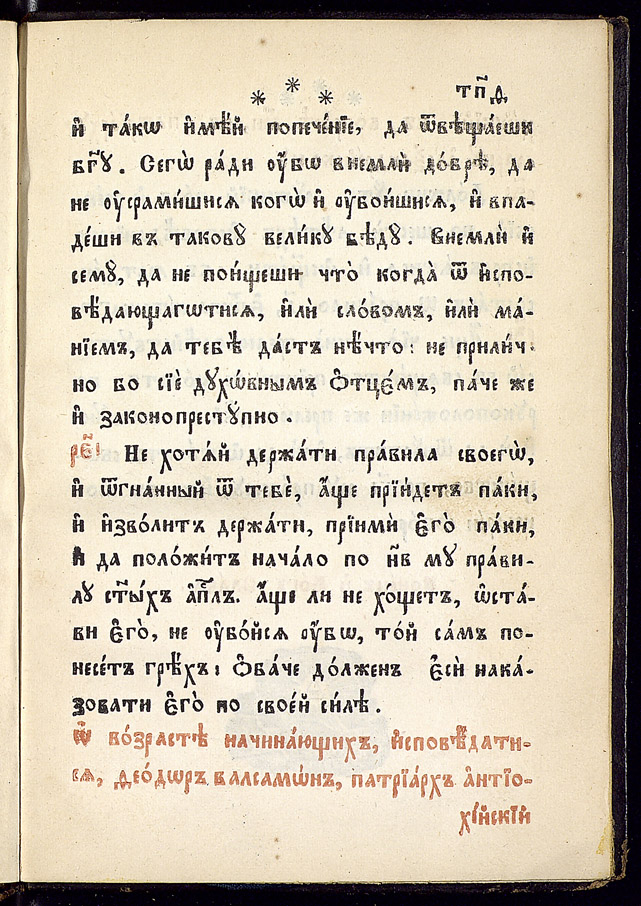 т҃п д҃
и҆ та́кѡ и҆мѣ́й попече́нїе, да ѿвѣща́еши
бг҃ꙋ. Сегѡ̀ ра́ди ᲂу҆́бѡ внемлѝ до́брѣ, да
не ᲂу҆срами́шисѧ когѡ̀ и҆ ᲂу҆бои́шисѧ, и҆ впа-
де́ши въ таковꙋ̀ вели́кꙋ бѣ́дꙋ. Внемлѝ и҆
семꙋ̀, да не пои́щеши что̀ когда̀ ѿ и҆спо-
вѣ́дающагѡтисѧ, и҆лѝ сло́вомъ, и҆лѝ ма́-
нїемъ, да тебѣ̀ да́стъ нѣ́что: не прили́ч-
но бо сїѐ дꙋхѡ́внымъ Ѻ҆тцє́мъ, па́че же
и҆ законопрестꙋ́пно.
рє҃і Не хотѧ́й держа́ти пра́вила своегѡ̀,
и҆ ѿгна́нный ѿ тебѐ, а҆́ще прїи́детъ па́ки,
и҆ и҆зво́литъ держа́ти, прїимѝ є҆го̀ па́ки,
и҆ да положи́тъ нача́ло по нв мꙋ пра́ви-
лꙋ ст҃ы́хъ а҆п҃лъ. а҆́ще ли не хо́щетъ, ѡ҆ста́-
ви є҆го̀, не ᲂу҆бо́йсѧ ᲂу҆́бѡ, то́й са́мъ по-
несе́тъ грѣ́хъ: Ѻ҆ба́че до́лженъ є҆сѝ нака́-
зовати є҆го̀ по свое́й си́лѣ.
Ѿ во́зрастѣ начина́ющихъ, и҆сповѣ́дати-
сѧ, Ѳ҆ео́дѡръ валсамѡ́нъ, патрїа́рхъ а҆нтїо-
хі́йскїй